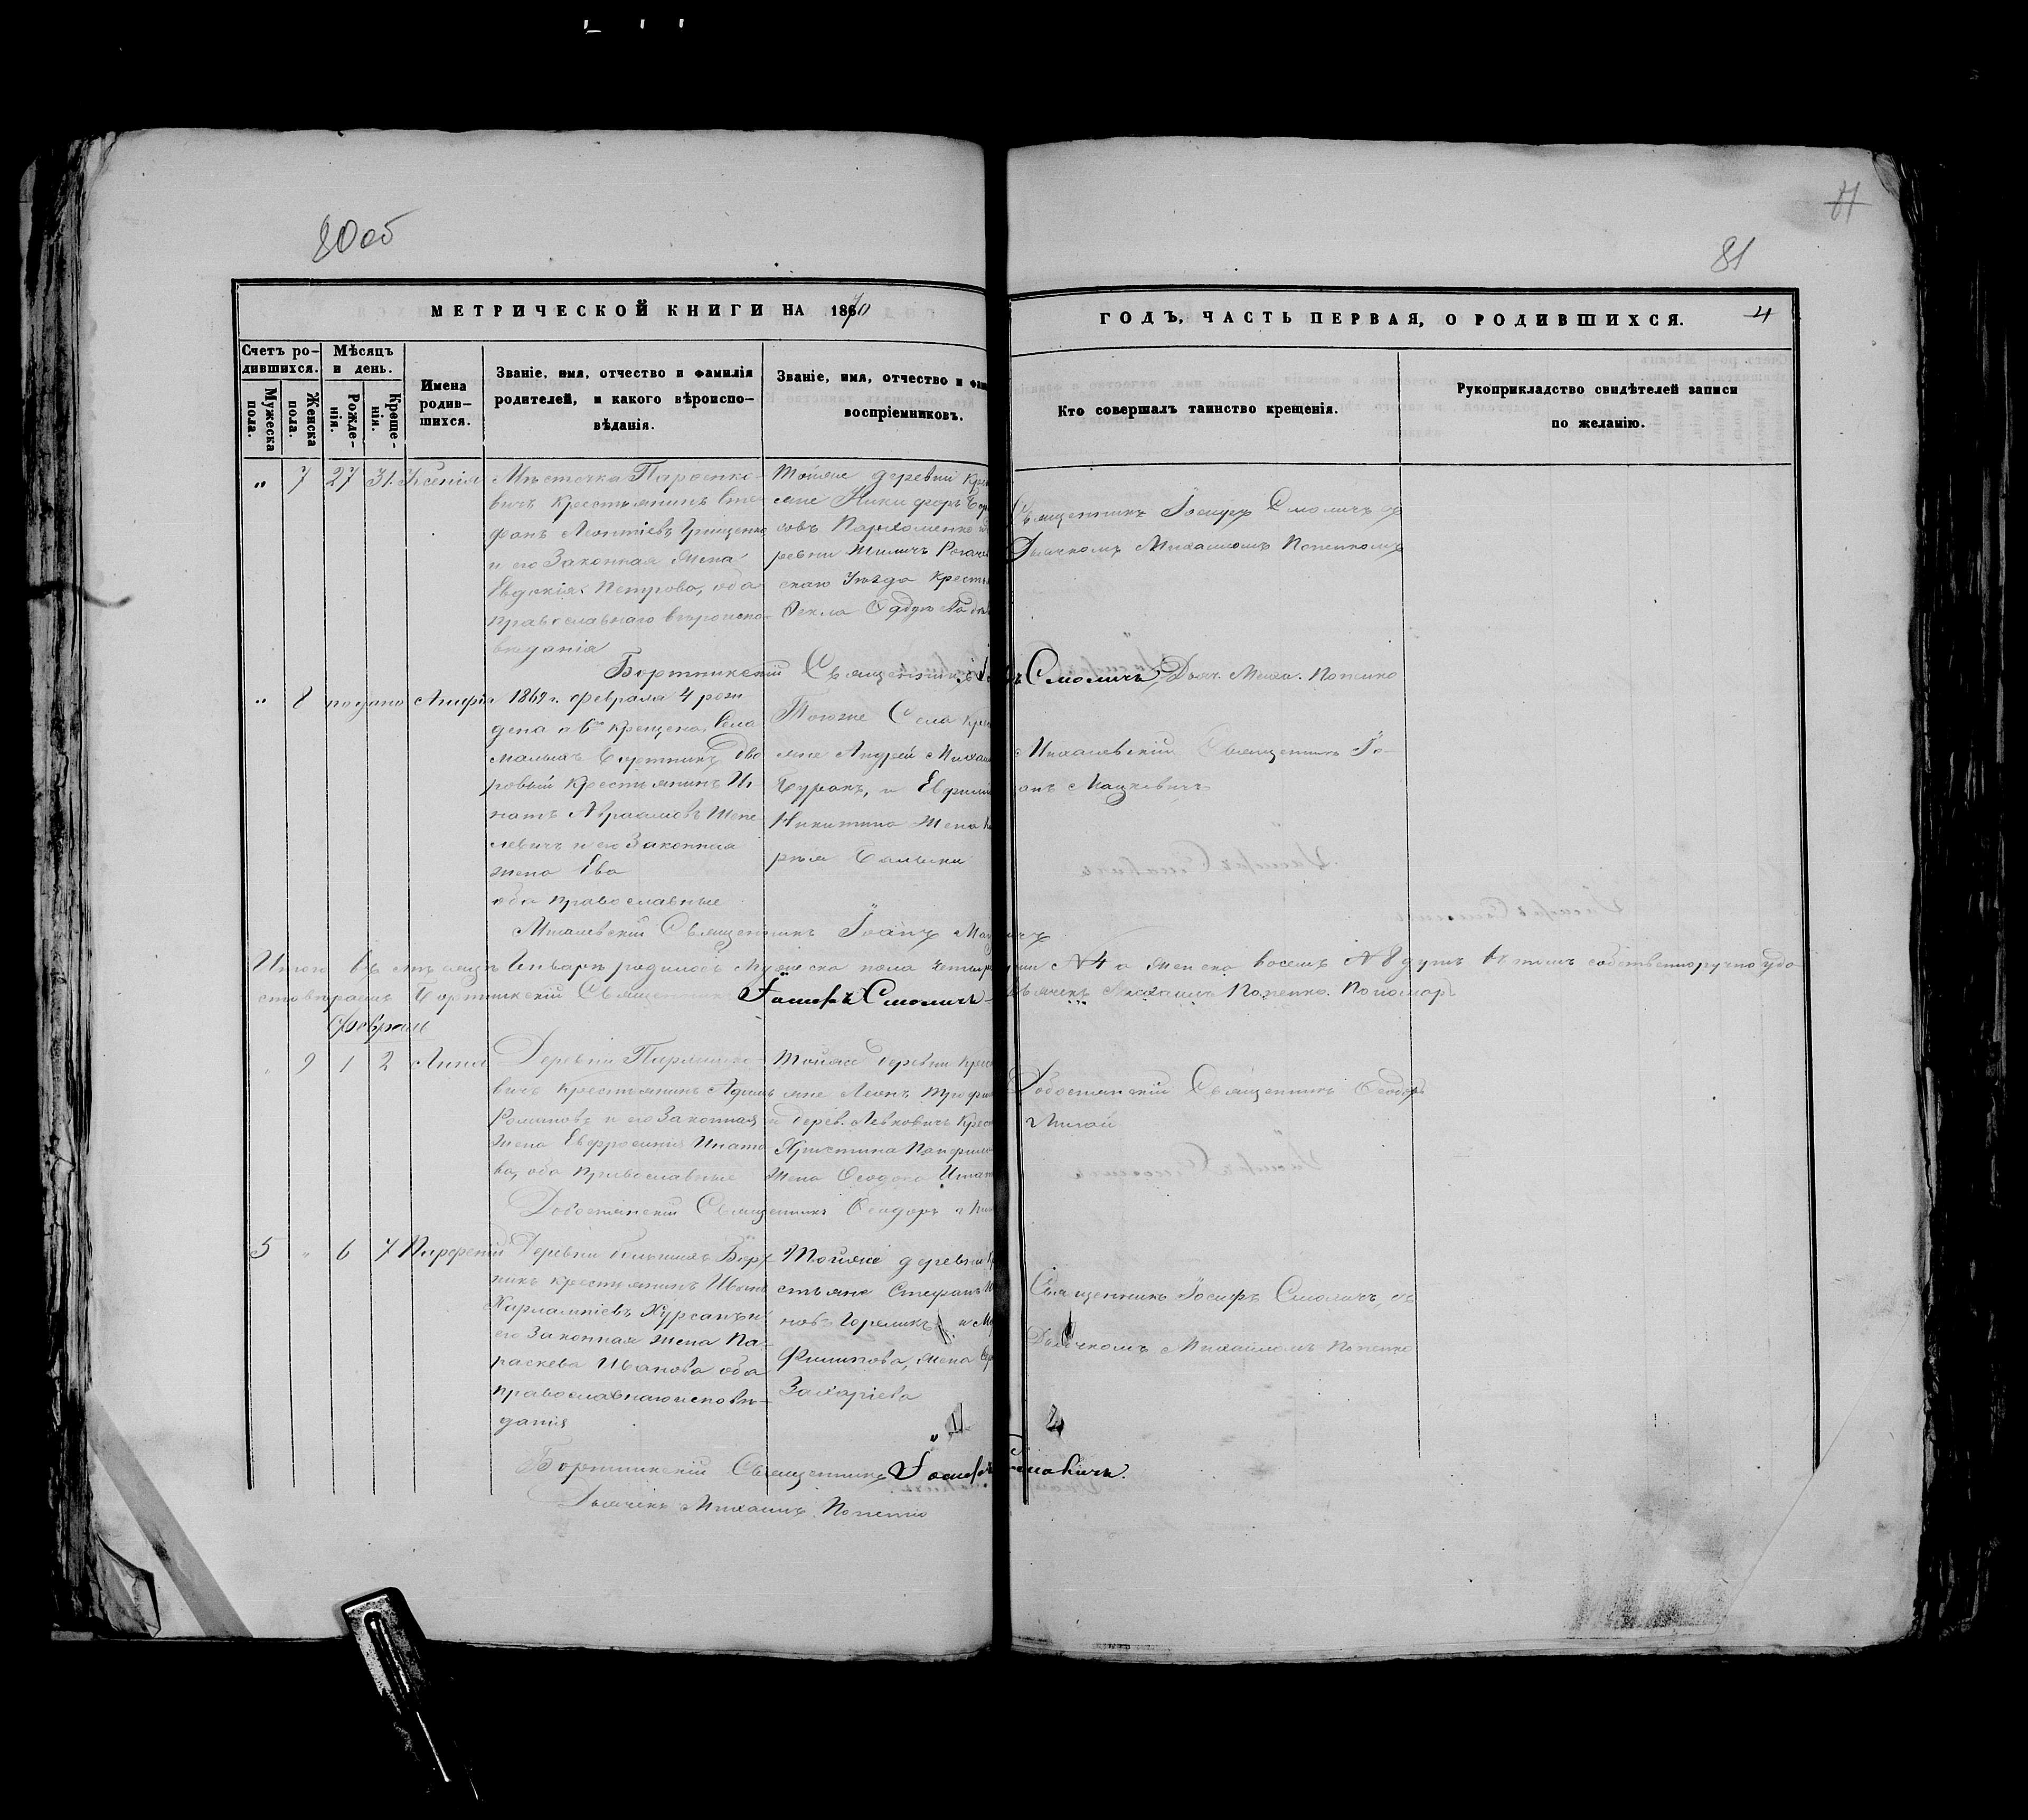 80 об
81
МЕТРИЧЕСКОЙ КНИГИ НА 1870
ГОДЪ, ЧАСТЬ ПЕРВАЯ, О РОДИВШИХСЯ.
4
Счетъ ро-
дившихся.
Мужеска пола.
Женска пола.
Мѣсяцъ
и день.
Рожде-
нія.
Креще-
нія.
Имена
родив-
шихся.
Званіе, имя, отчество и фамилія
родителей, и какого вѣроиспо-
вѣданія.
Званіе, имя, отчество и фами
воспріемниковъ.
Кто совершалъ таинство крещенія.
Рукоприкладство свидѣтелей записи
по желанію.
„ 7 27 31. Ксенія
Мѣстечка
вичъ крестьянинъ Сте-
фанъ Леонтіевъ Грищенко
и его Законная Жена
Евдокія Петрова, оба
православнаго вѣроиспо-
вѣданія
Тойже деревни Кре
яне Никифоръ
овъ Пархоменко
ревни Жиличъ Рогаче
скаго Уѣзда Кресть
Ѳекла
Священникъ Іосифъ Смоличъ съ
Дьячкомъ Михаиломъ Попенкомъ
Бортникскій Священникъ Смоличъ, Дьяч. Миха. Попенко
„ 8
1869 г. Февраля 4 рож
дена а 6 крещена Села
Малыхъ Бортникъ дво
ровый Крестьянинъ Иг
натъ Авраамовъ Шепе
левичъ и его Законная
жена Ева
оба православные
Тогоже Села Крес
яне Андрей Миха
Буракъ, и
Никитина Жена
Михалевскій Священникъ Іо-
анъ Мацкевичъ
Михалевскій Священникъ Іоанъ
Итого въ мѣсяцѣ Январѣ родилось Мужеска пола четыре № 4 а женска восемь № 8 душъ въ томъ собственноручно удо
стовѣряемъ Бортникскій Священникъ Іосифъ Смоличъ Дьячекъ Михаилъ Попенко. Пономарь
Февраль
„ 9 1 2 Анна
Деревни
вичъ крестьянинъ Адамъ
Романовъ и его Законная
жена Евфросинія Игнато
ва, оба православные
Тойже деревни Крес
яне Леонъ Трофи
и дерев. Левковичъ Крес
Христина Панфило
жена Ѳеодора Игнат
Добосянскій Священникъ Ѳеодоръ
Добосянскій Священникъ Ѳеодоръ
5 „ 6 7 Парфеній
Деревни Большихъ Борт-
никъ крестьянинъ Иванъ
Харлампіевъ Хурсанъ и
его Законная жена Па-
раскева Иванова оба
православнаго исповѣ-
данія
Тойже деревни Кре
стьяне Стефанъ
новъ Гореликъ и
Филипова, жена
Захаріева
Священникъ Іосифъ Смоличъ, съ
Дьячкомъ Михаиломъ Попенко
Бортникскій Священникъ Іосифъ Смоличъ.
Дьячекъ Михаилъ Попенко